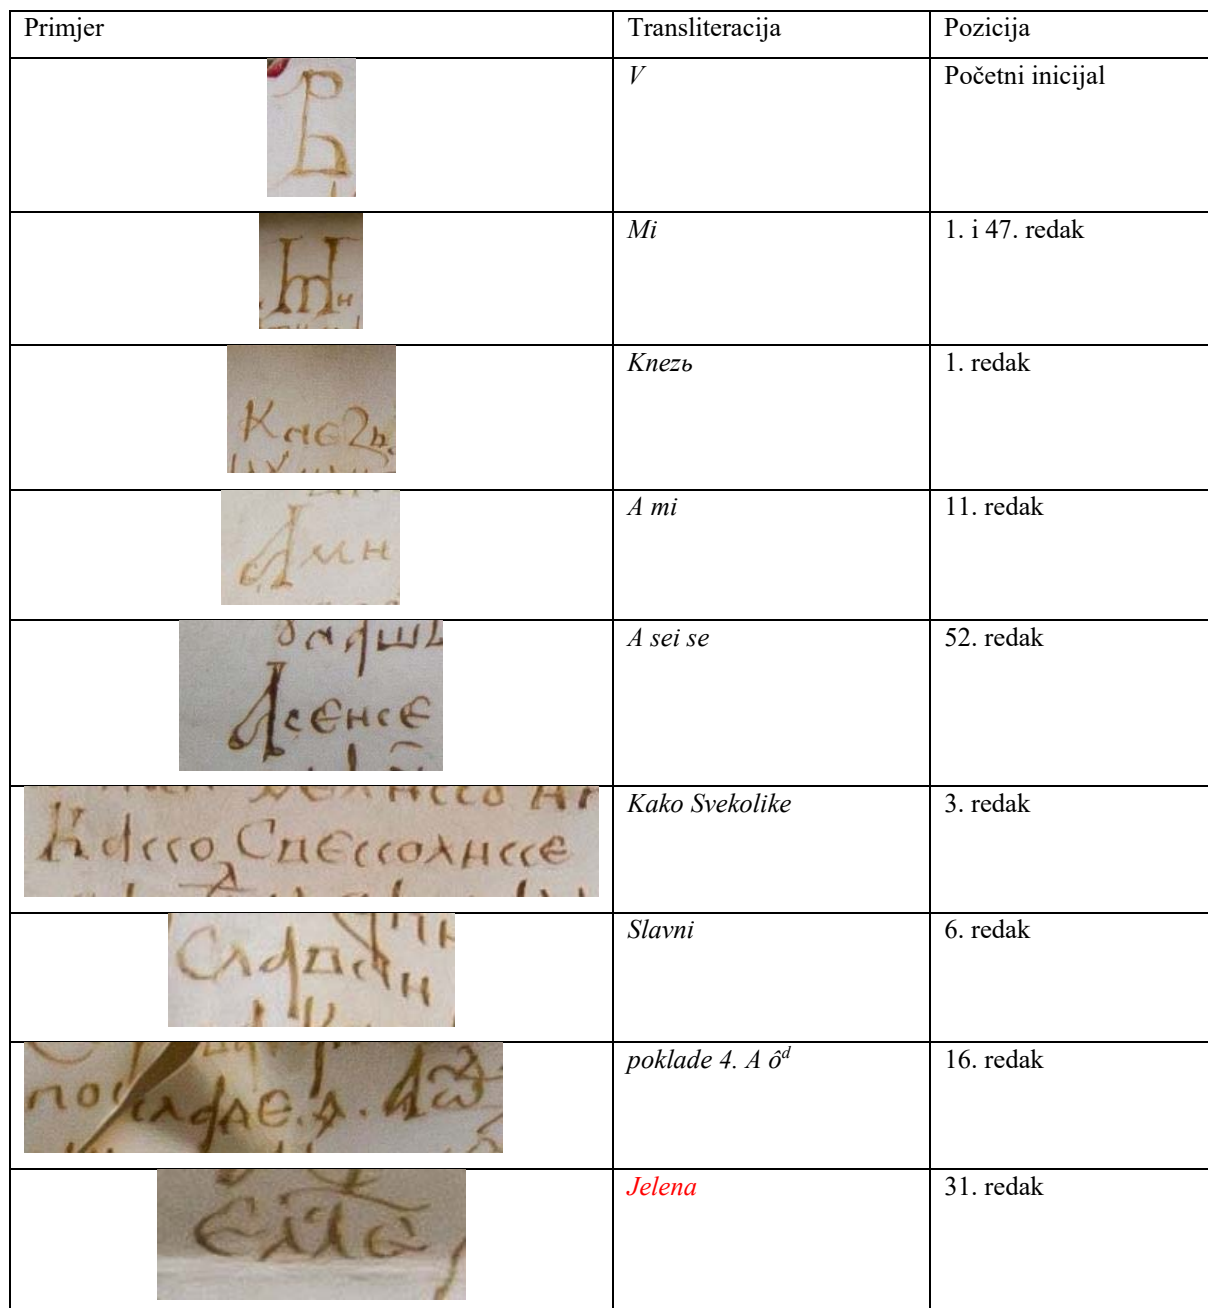 Primjer Transliteracija Pozicija
В V Početni inicijal
Ми Mi 1. i 47. redak
Кнезь Knezь 1. redak
А ми A mi 11. redak
А сеи се A sei se 52. redak
Како Свеколике Kako Svekolike 3. redak
Славни Slavni 6. redak
покладе.д. А ѡд poklade 4. A ôᵈ 16. redak
Jelena 31. redak